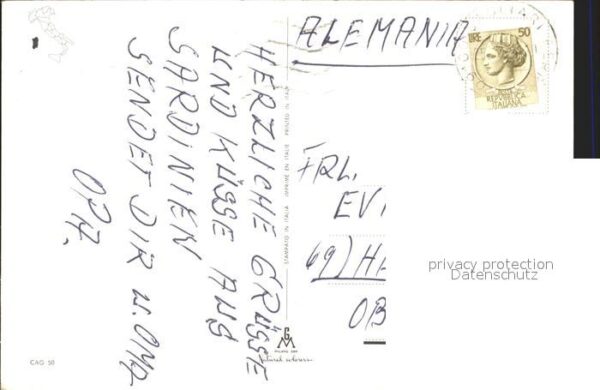 HERZLICHE GRÜSSE
UND KÜSSE AUS
SARDINIEN
SENDET DIR u. OMA
OPA.
CAG 50
STAMPATO IN ITALIA IMPRIME EN ITALIE PRINTED IN ITALY
GM
ALEMANIA
LIRE 50
POSTE
REPVBBLICA
ITALIANA
FRL.
EV
69) HE
OB
privacy protection
Datenschutz